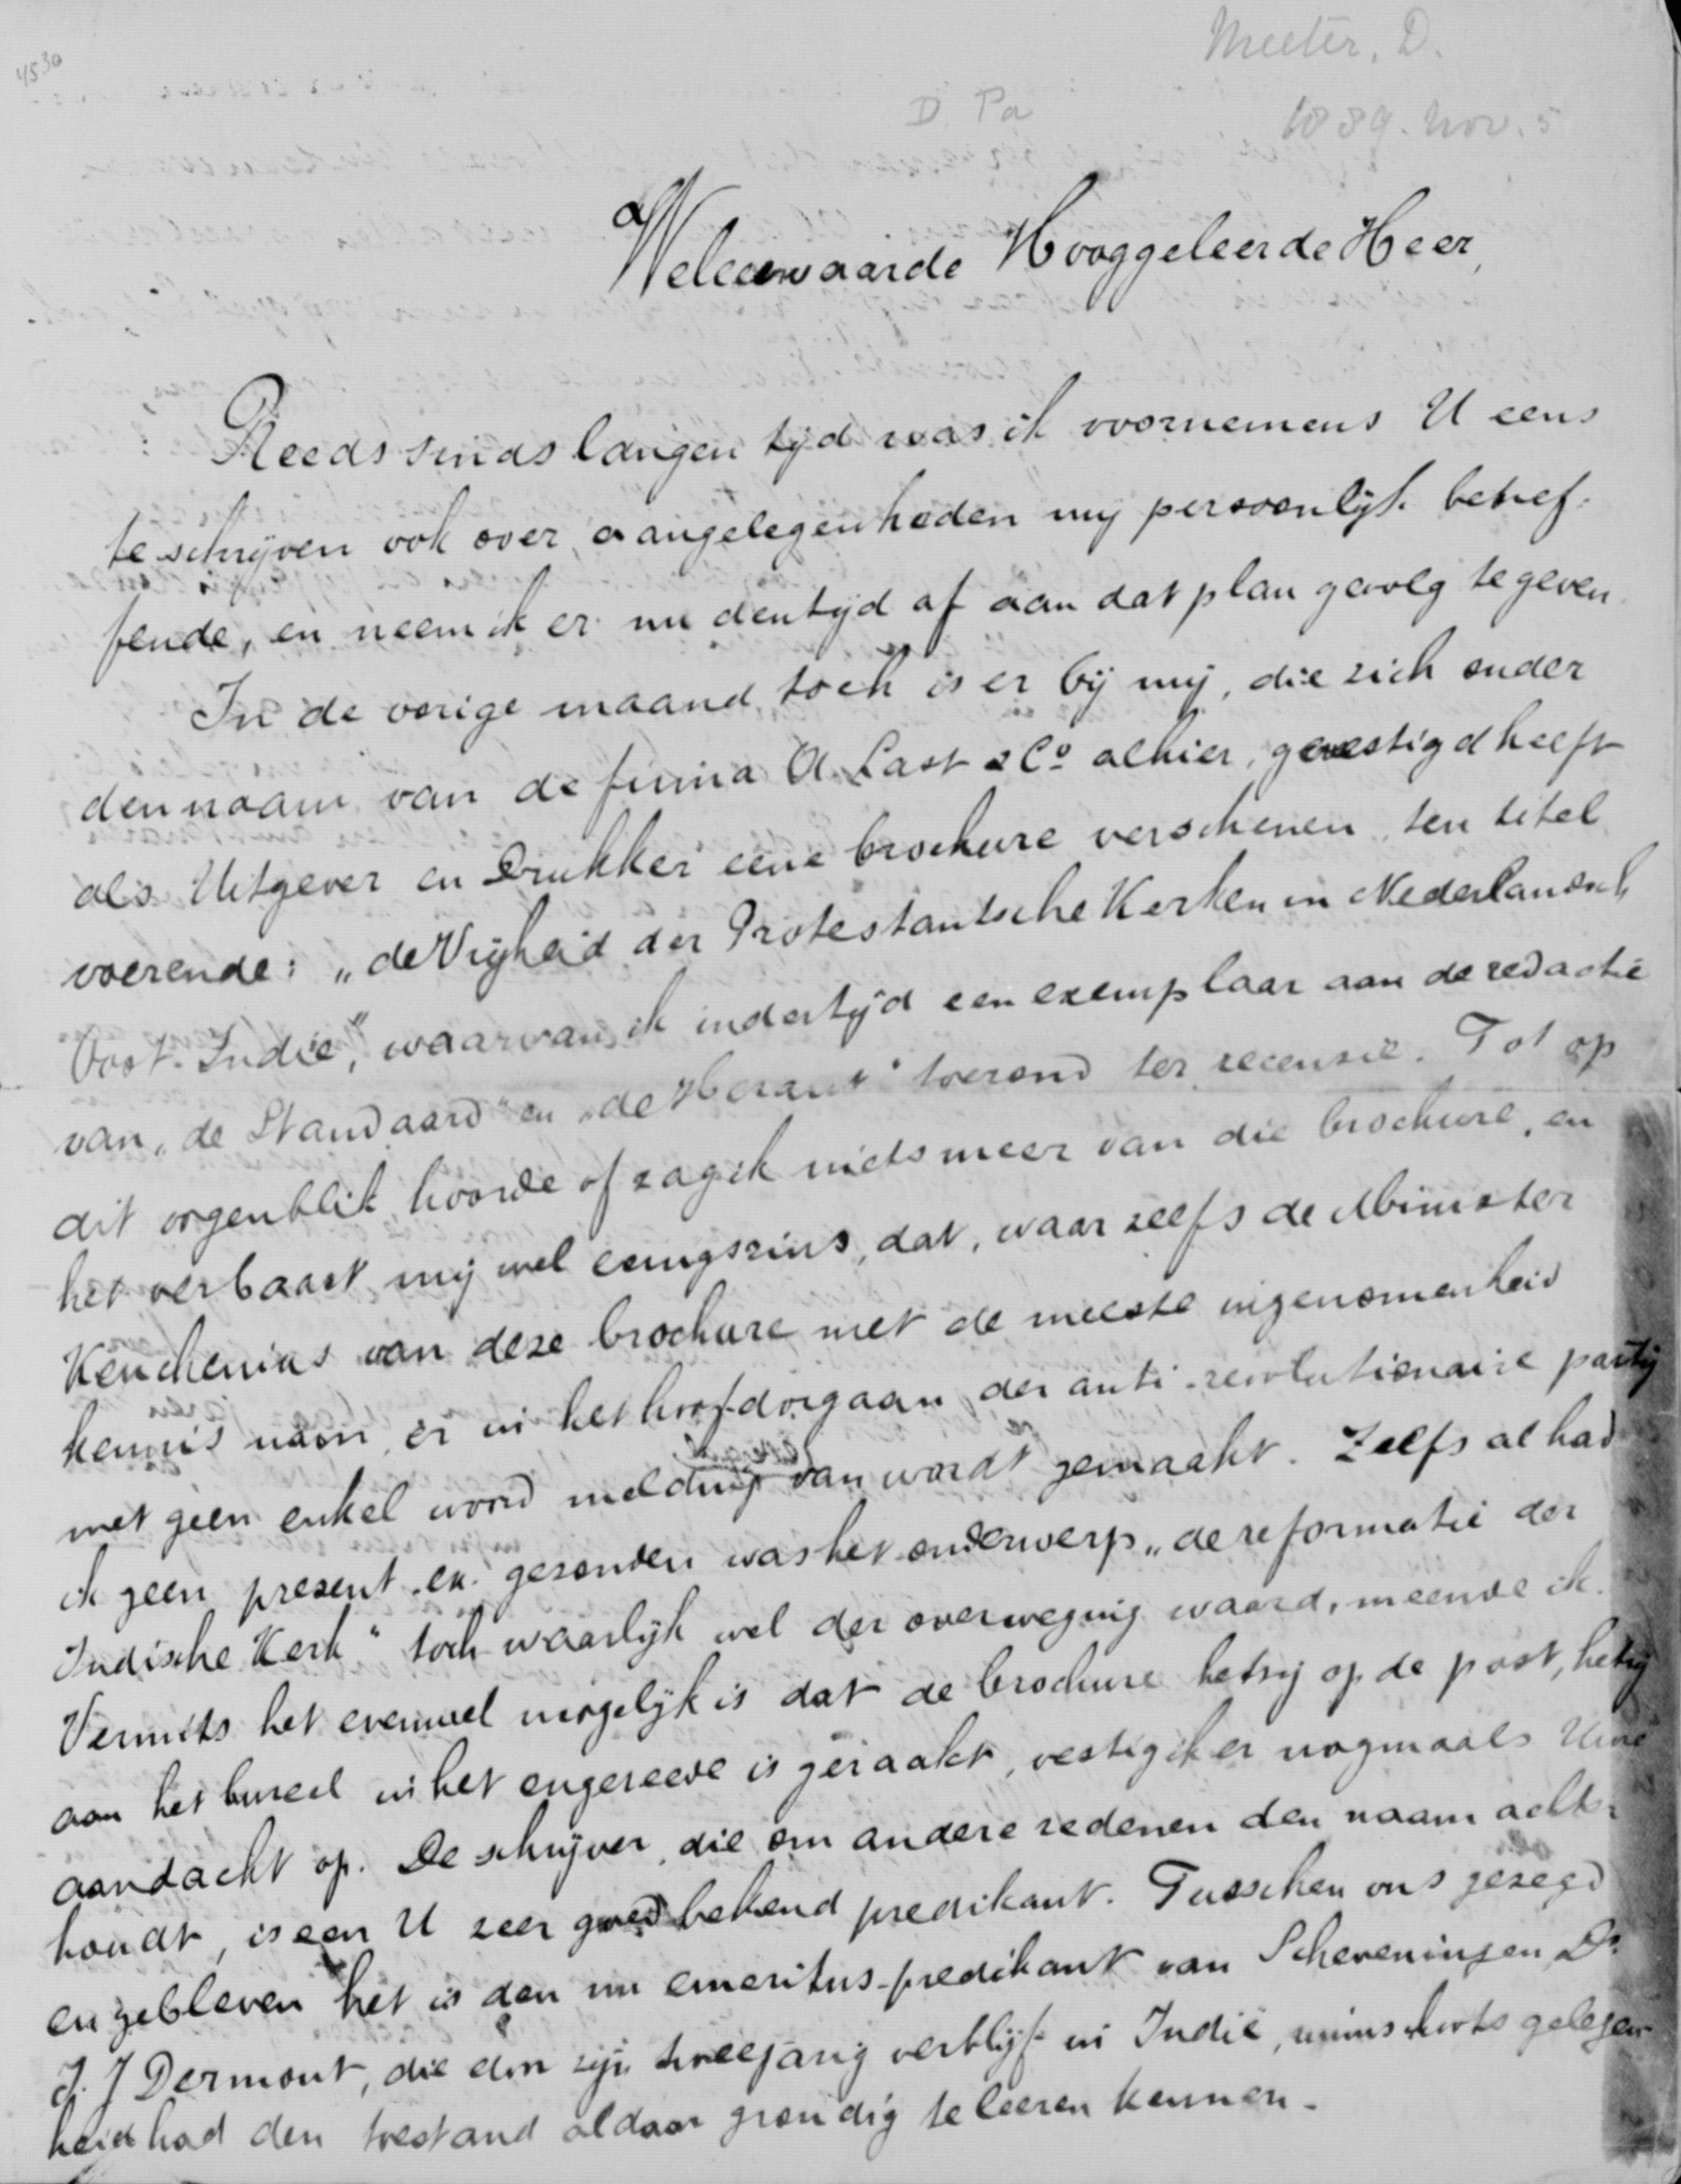 4530
Meeter, D.
D. Pa
1889. Nov. 5
Weleerwaarde Hooggeleerde Heer,
Reeds sinds langen tijd was ik voornemens U eens
te schrijven ook over aangelegenheden mij persoonlijk betref-
fende, en neem ik er nu den tijd af aan dat plan gevolg te geven.
In de vorige maand toch is er bij mij, die zich onder
den naam van de firma A. Last & Co alhier, gevestigd heeft
als Uitgever en Drukker eene brochure verschenen ten titel
voerende: „de Vrijheid der Protestantsche Kerken in Nederlandsch
Oost-Indië", waarvan ik indertijd een exemplaar aan de redactie
van „de Standaard" en „de Heraut" toezond ter recensie. Tot op
dit oogenblik hoorde of zag ik niets meer van die brochure, en
het verbaast mij wel eenigszins, dat, waar zelfs de Minister
Keuchenius van deze brochure met de meeste ingenomenheid
kennis nam, er in het hoofdorgaan der anti-revolutionaire partij
met geen enkel woord melding van wordt gemaakt. Zelfs al had
ik geen present-ex. gezonden was het onderwerp „de reformatie der
Indische Kerk" toch waarlijk wel der overweging waard, meende ik.
Vermits het evenwel mogelijk is dat de brochure hetzij op de post, hetzij
aan het bureel in het ongereede is geraakt, vestig ik er nogmaals Uwe
aandacht op. De schrijver, die om andere redenen den naam achter
houdt, is een U zeer goed bekend predikant. Tusschen ons gezegd
en gebleven het is den nu emeritus-predikant van Scheveningen Ds
J. J Dermout, die don zijn tweejarig verblijf in Indië, ruimschoots gelegen-
heid had den toestand aldaar grondig te leeren kennen.